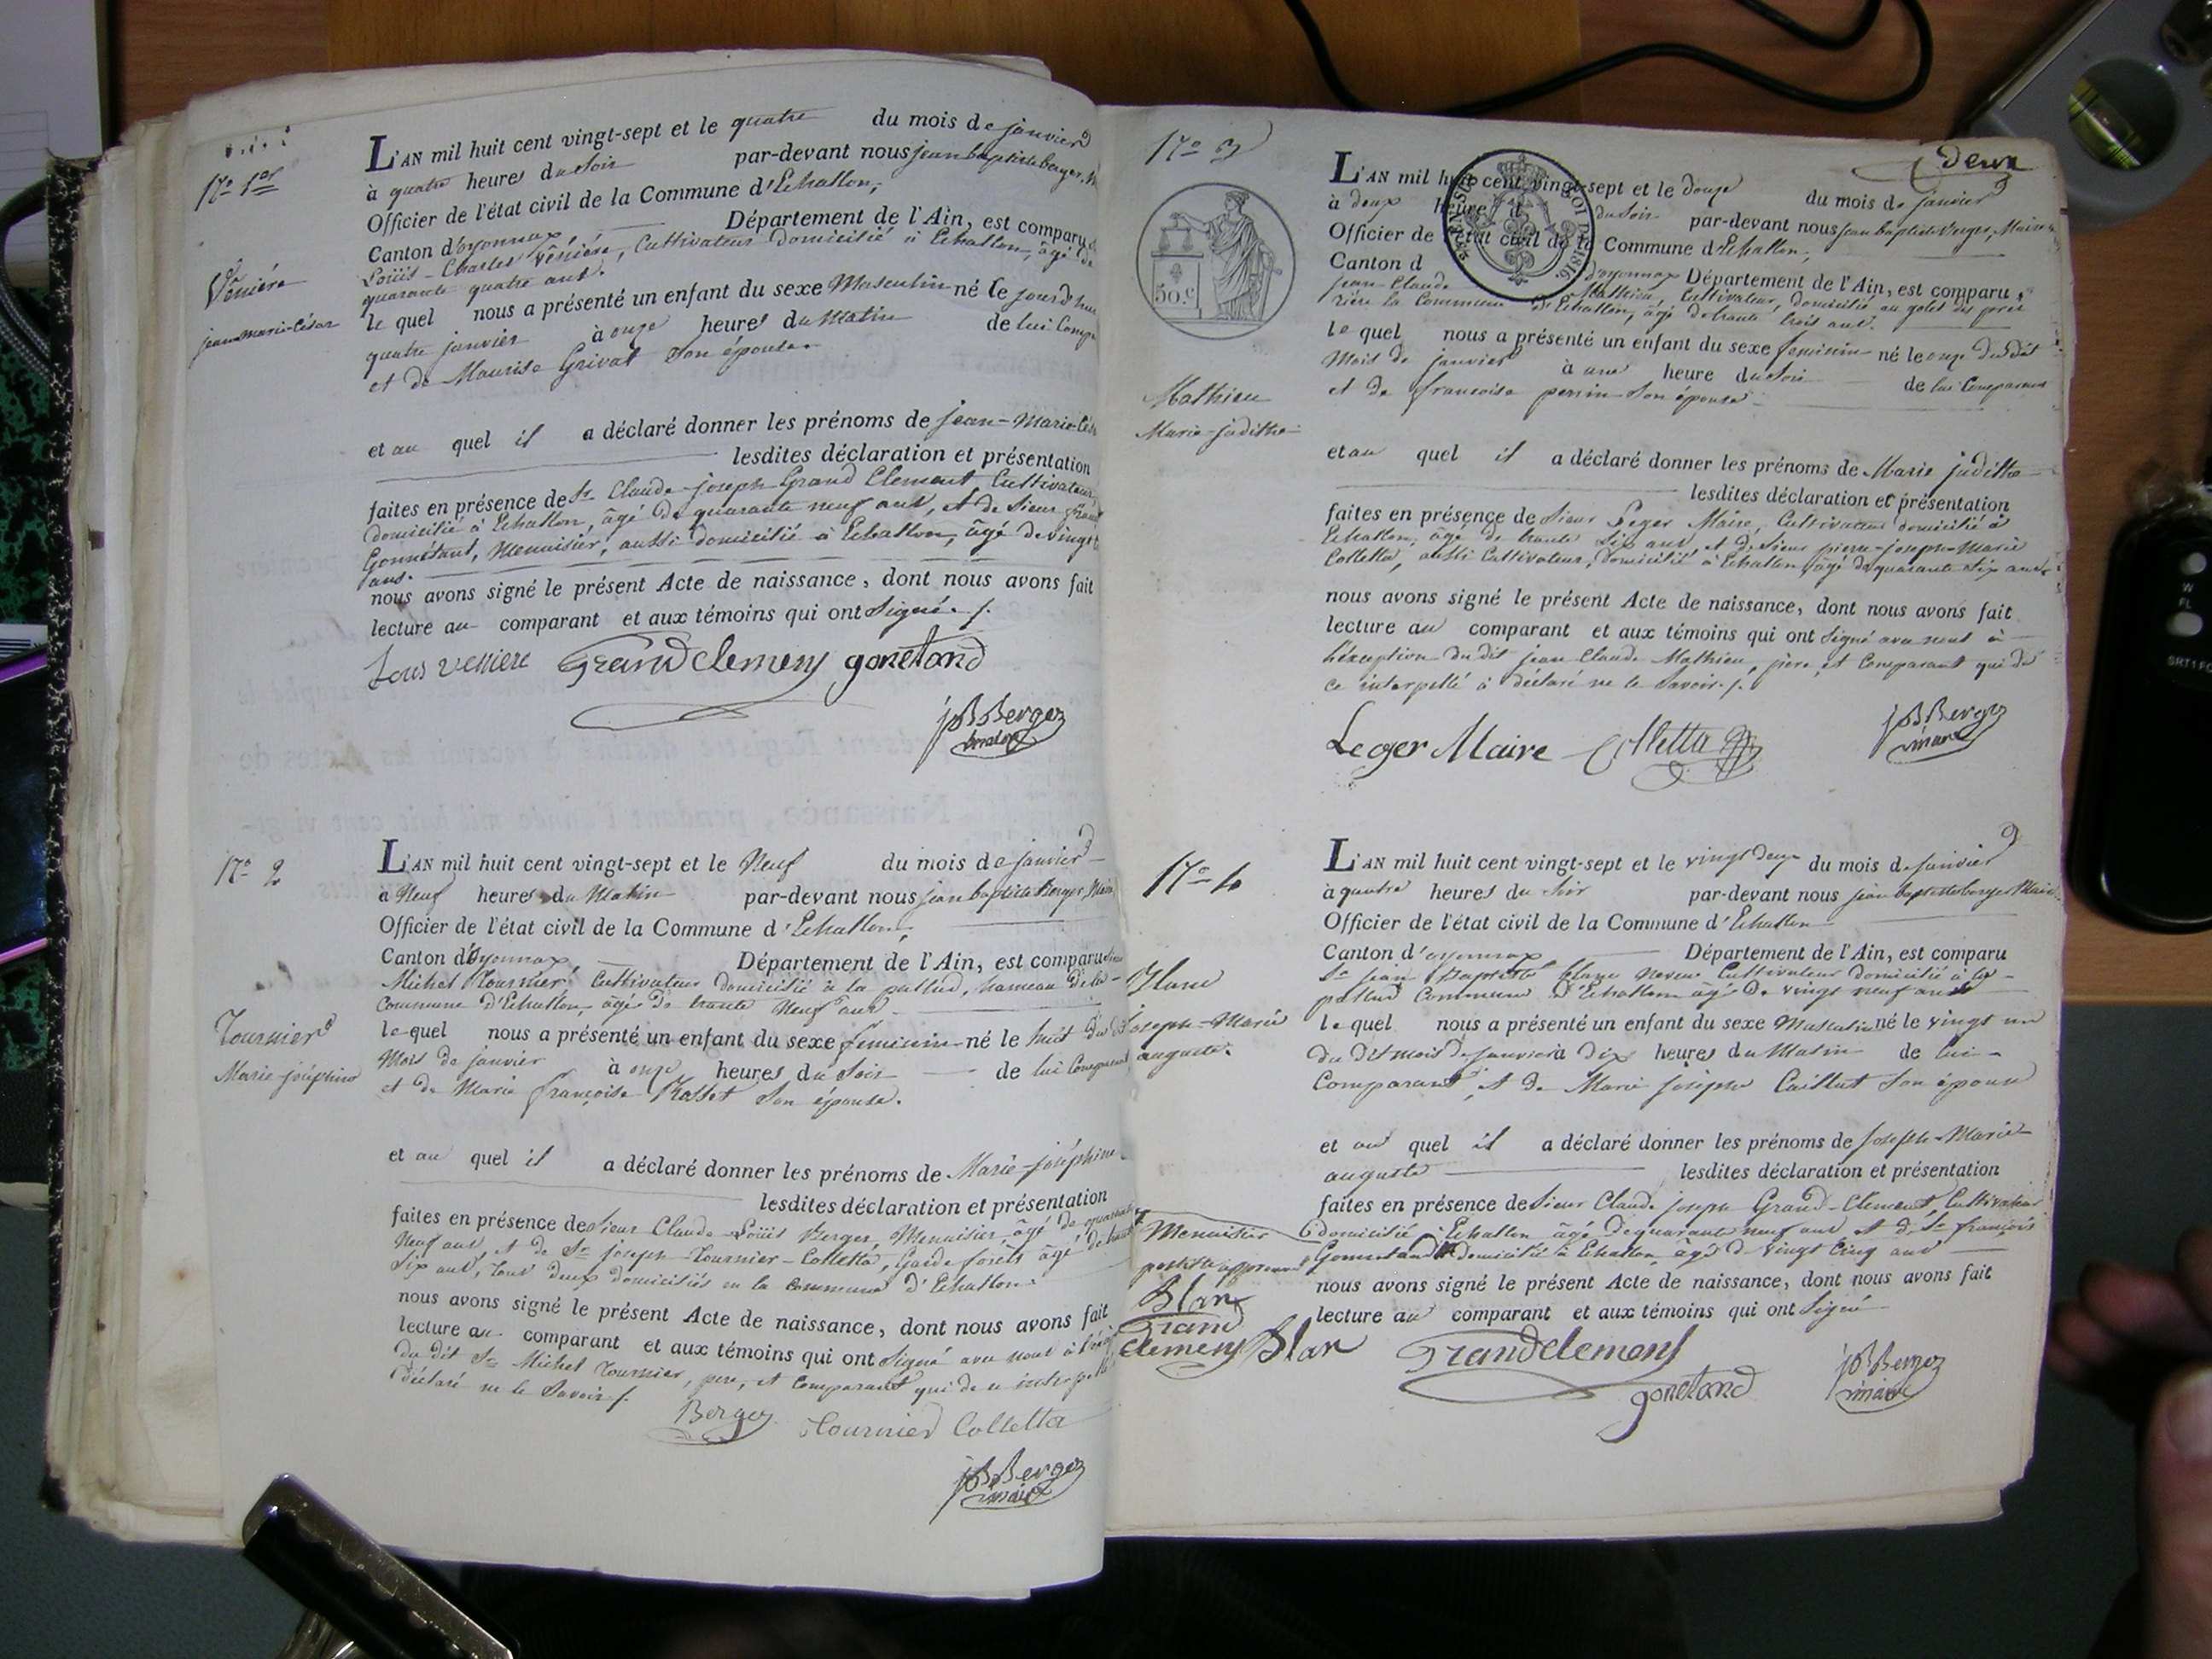 N.° 1.er
Vénière
jean-marie-César
L'AN mil huit cent vingt-sept et le quatre du mois de janvier
à quatre heures du Soir par-devant nous jean baptiste berger,
Officier de l'état civil de la Commune d'Echallon,
Canton d'oyonnax, Département de l'Ain, est comparu
Loüis-Charles Vénière, Cultivateur domicilié à Echallon, âgé de
quarante quatre ans.
le quel nous a présenté un enfant du sexe Masculin né le jourd'hui
quatre janvier à onze heures du Matin de lui Comp
et de Maurise Grivat Son épouse.
et au quel il a déclaré donner les prénoms de jean-Marie-Cés
lesdites déclaration et présentation
faites en présence de Sr Claude-joseph Grand Clement Cultivateur,
domicilié à Echallon, âgé de quarante neuf ans, et de Sieur
Gonnétant, Menuisier, aussi domicilié à Echallon, âgé de vingt
ans.
nous avons signé le présent Acte de naissance, dont nous avons fait
lecture au comparant et aux témoins qui ont Signé. /.
Louis veniere Grandclement gonetand
jB Berger
N.° 2
Tournier
Marie-joséphine
L'AN mil huit cent vingt-sept et le Neuf du mois de janvier
à Neuf heures du Matin par-devant nous jean baptiste Berger, Maire
Officier de l'état civil de la Commune d'Echallon,
Canton d'Oyonnax, Département de l'Ain, est comparu
Michel Tournier, Cultivateur domicilié à la pallud, hameau de la
Commune d'Echallon, âgé de trente Neuf ans.
le quel nous a présenté un enfant du sexe feminin né le huit du dit
Mois de janvier à onze heures du Soir de lui Comparant
et de Marie françoise Rosset Son épouse.
et au quel il a déclaré donner les prénoms de Marie-joséphine
lesdites déclaration et présentation
faites en présence de Sieur Claude-Loüis Berger, Menuisier, âgé de quarante
Neuf ans, et de Sr joseph-Tournier-Colletta, Garde forêts âgé de trente
Six ans, tous deux domiciliés en la Commune d'Echallon.
nous avons signé le présent Acte de naissance, dont nous avons fait
lecture au comparant et aux témoins qui ont Signé avec nous à
du dit Sr Michel Tournier, père, et Comparant qui de ce interpellé
déclaré ne le Savoir /.
Berger Tournier Colletta
jB Berger
maire
deux
N.° 3
50.c
TIMBRE SUP LOI DE 1816.
Mathieu
Marie-judithe
L'AN mil huit cent vingt-sept et le douze du mois de janvier
à deux heure du Soir par-devant nous jean baptiste Berger, Maire
Officier de l'état civil de la Commune d'Echallon,
Canton d'oyonnax Département de l'Ain, est comparu
jean-Claude Mathieu, Cultivateur, domicilié au golet des prez
rière la Commune d'Echallon, âgé de trente trois ans.
le quel nous a présenté un enfant du sexe feminin né le onze du dit
Mois de janvier à une heure du Soir de lui Comparant
et de françoise perrin Son épouse
et au quel il a déclaré donner les prénoms de Marie judithe
lesdites déclaration et présentation
faites en présence de Sieur Leger Maire, Cultivateur domicilié à
Echallon, âgé de trente Six ans, et de Sieur pierre-joseph-Marie
Colletta, aussi Cultivateur, domicilié à Echallon, âgé de quarante Six ans
nous avons signé le présent Acte de naissance, dont nous avons fait
lecture au comparant et aux témoins qui ont Signé avec nous à
l'éxception du dit jean Claude Mathieu, père et Comparant qui de
ce interpellé à déclaré ne le Savoir. /.
Leger Maire Colletta
jB Berger
maire
N.° 4
Blanc
joseph-Marie
auguste.
L'AN mil huit cent vingt-sept et le vingt deux du mois de janvier
à quatre heures du Soir par-devant nous jean baptiste berger Maire
Officier de l'état civil de la Commune d'Echallon
Canton d'oyonnax Département de l'Ain, est comparu
Sr jean Baptiste blanc neveu Cultivateur domicilié à la
pallud Commune d'Echallon âgé de vingt neuf ans
le quel nous a présenté un enfant du sexe Masculin né le vingt un
du dit mois de janvier à dix heures du Matin de lui
Comparant, et de Marie josèphe Caillat Son épouse
et au quel il a déclaré donner les prénoms de Joseph-Marie
auguste lesdites déclaration et présentation
faites en présence de Sieur Claude joseph Grand-Clement, Cultivateur
domicilié à Echallon âgé de quarante neuf ans et de Sr françois
Gonnetand domicilié à Echallon, âgé de vingt Cinq ans
nous avons signé le présent Acte de naissance, dont nous avons fait
lecture au comparant et aux témoins qui ont Signé
Menuisier
Blan
Grand
clement Blan Grandclement
gonetand
jB Berger
maire